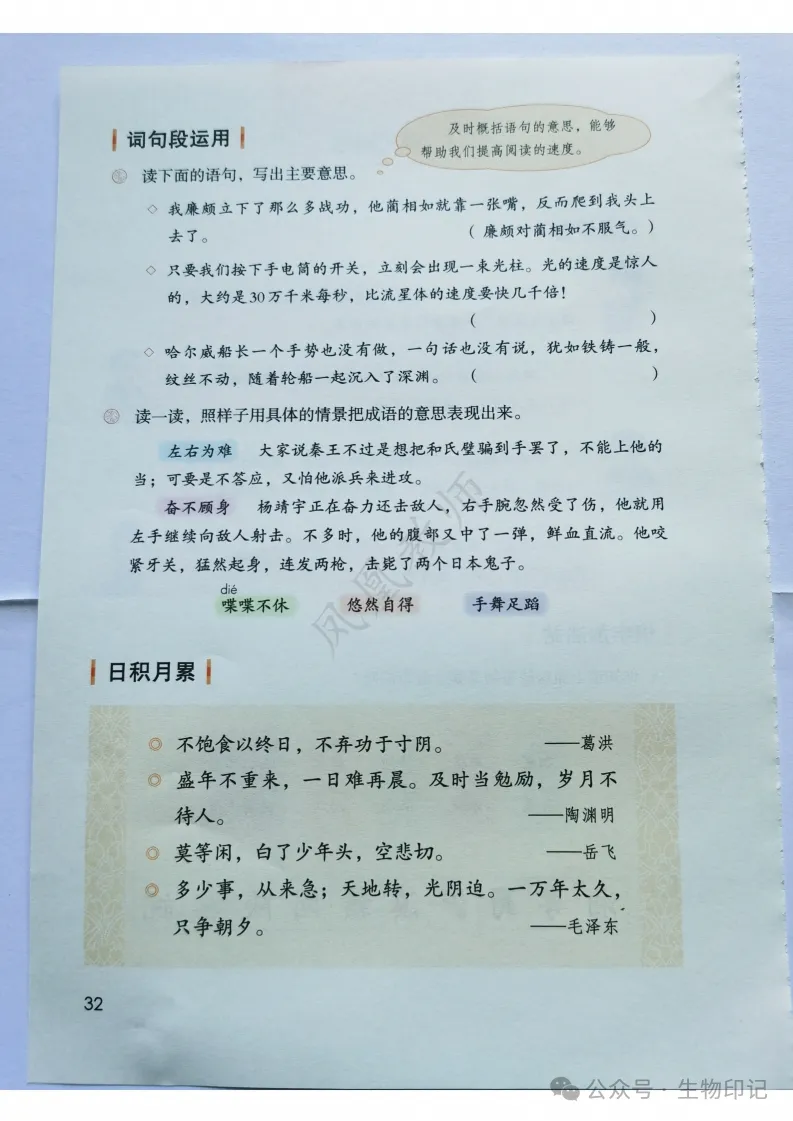 词句段运用
及时概括语句的意思，能够
帮助我们提高阅读的速度。
读下面的语句，写出主要意思。
◇ 我廉颇立下了那么多战功，他蔺相如就靠一张嘴，反而爬到我头上
去了。 （ 廉颇对蔺相如不服气。）
◇ 只要我们按下手电筒的开关，立刻会出现一束光柱。光的速度是惊人
的，大约是30万千米每秒，比流星体的速度要快几千倍！
（ ）
◇ 哈尔威船长一个手势也没有做，一句话也没有说，犹如铁铸一般，
纹丝不动，随着轮船一起沉入了深渊。 （ ）
读一读，照样子用具体的情景把成语的意思表现出来。
左右为难 大家说秦王不过是想把和氏璧骗到手罢了，不能上他的
当；可要是不答应，又怕他派兵来进攻。
奋不顾身 杨靖宇正在奋力还击敌人，右手腕忽然受了伤，他就用
左手继续向敌人射击。不多时，他的腹部又中了一弹，鲜血直流。他咬
紧牙关，猛然起身，连发两枪，击毙了两个日本鬼子。
dié
喋喋不休 悠然自得 手舞足蹈
凤凰教师
日积月累
不饱食以终日，不弃功于寸阴。 ——葛洪
盛年不重来，一日难再晨。及时当勉励，岁月不
待人。 ——陶渊明
莫等闲，白了少年头，空悲切。 ——岳飞
多少事，从来急；天地转，光阴迫。一万年太久，
只争朝夕。 ——毛泽东
32
公众号 · 生物印记